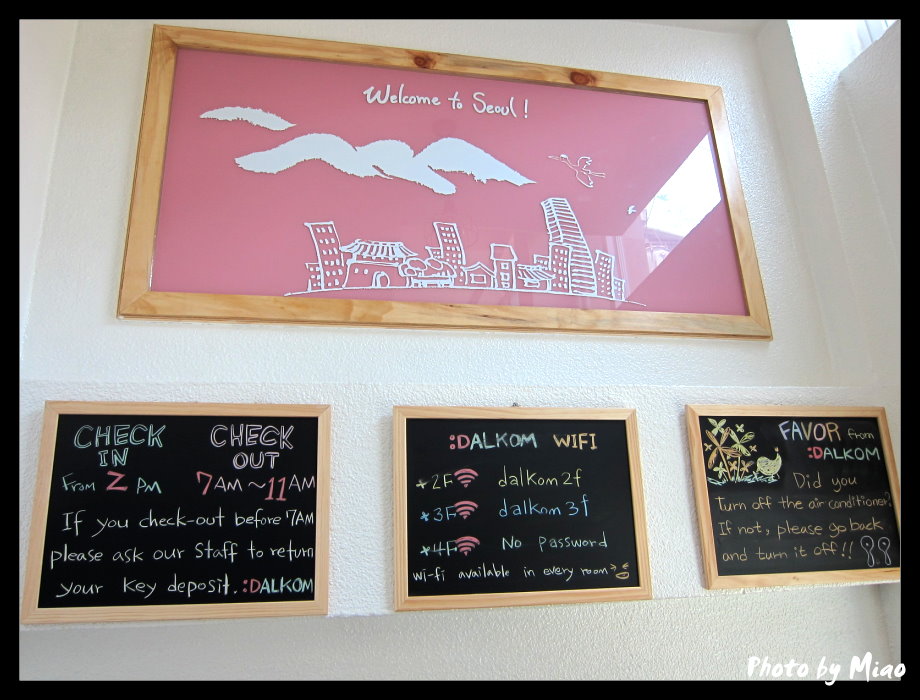 Welcome to Seoul!
CHECK IN
From 2 PM
CHECK OUT
7AM ~ 11AM
If you check-out before 7AM
please ask our staff to return
your key deposit. :DALKOM
:DALKOM WIFI
*2F dalkom2f
*3F dalkom3f
*4F No password
wi-fi available in every room
FAVOR from
:DALKOM
Did you
Turn off the air conditioner?
If not, please go back
and turn it off!!
Photo by Miao